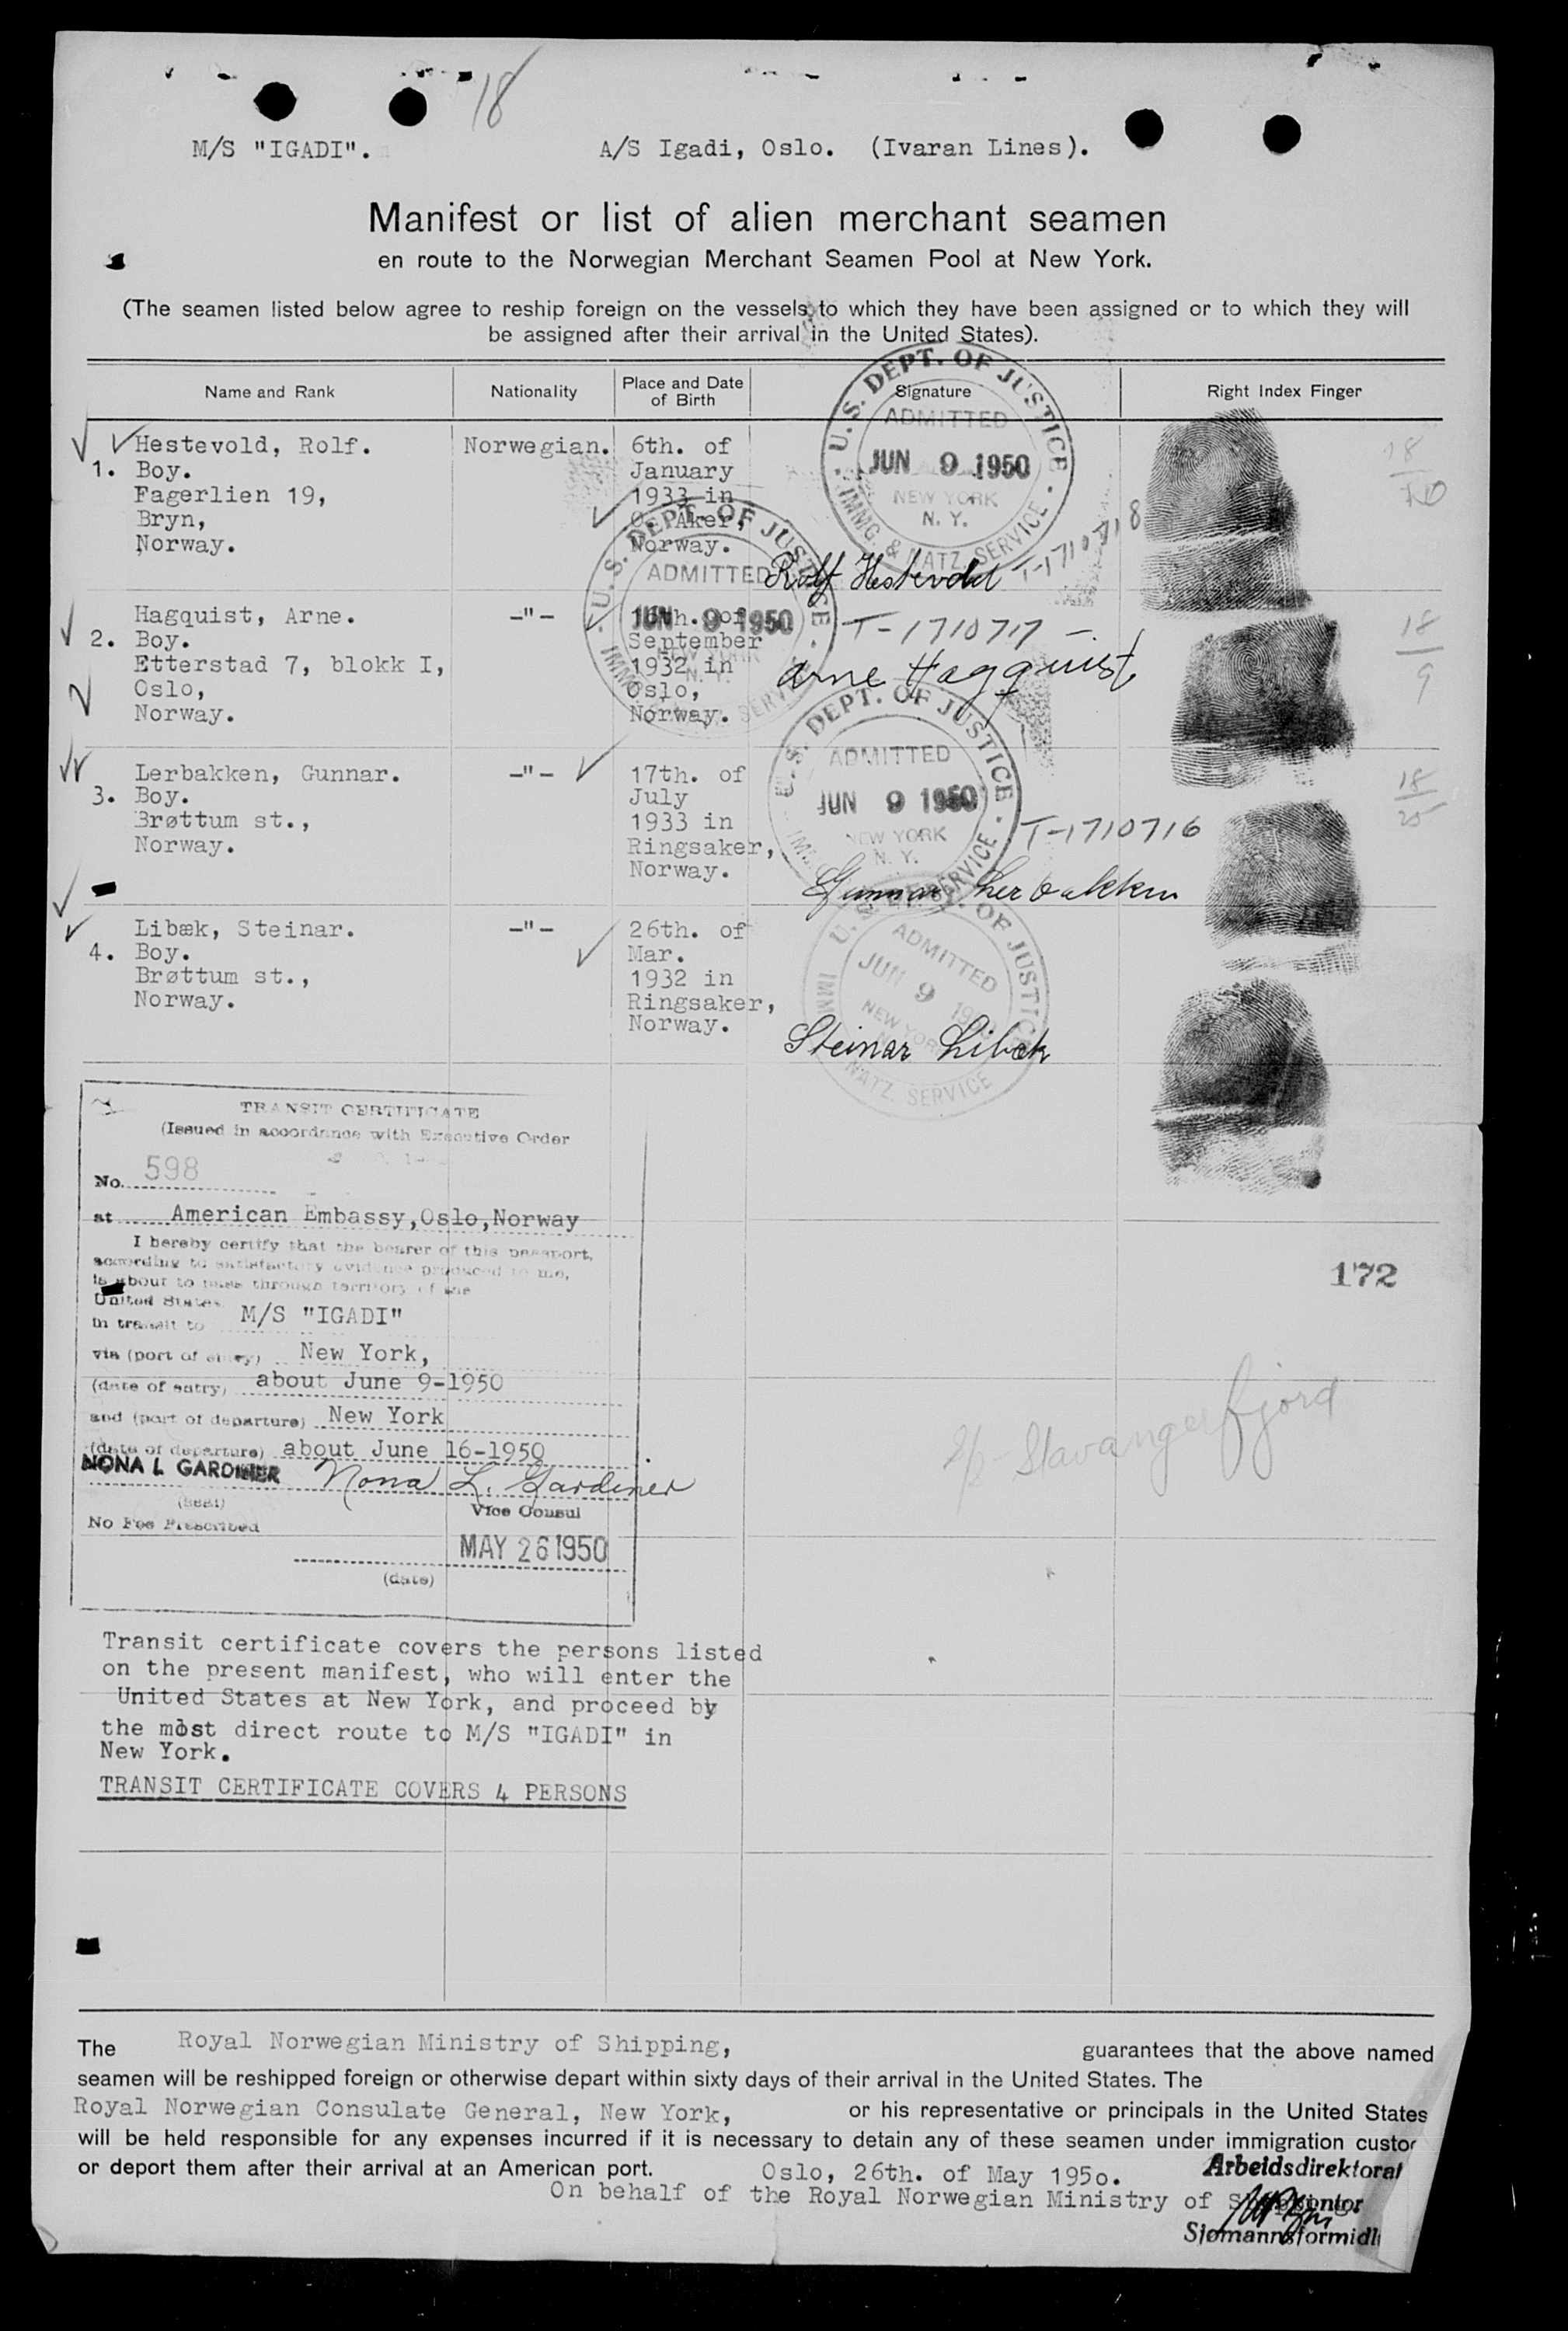 18
M/S "IGADI".
A/S Igadi, Oslo. (Ivaran Lines).
Manifest or list of alien merchant seamen
en route to the Norwegian Merchant Seamen Pool at New York.
(The seamen listed below agree to reship foreign on the vessels to which they have been assigned or to which they will
be assigned after their arrival in the United States).
Name and Rank
Nationality
Place and Date
of Birth
Signature
Right Index Finger
1.
Hestevold, Rolf.
Boy.
Fagerlien 19,
Bryn,
Norway.
Norwegian.
6th. of
January
1933 in
Aker,
Norway.
U. S. DEPT. OF JUSTICE
ADMITTED
JUN 9 1950
NEW YORK
N. Y.
IMMG. & NATZ. SERVICE
Rolf Hestevold
T-1710718
18
10
2.
Hagquist, Arne.
Boy.
Etterstad 7, blokk I,
Oslo,
Norway.
-"-
16th. of
September
1932 in
Oslo,
Norway.
U. S. DEPT. OF JUSTICE
ADMITTED
JUN 9 1950
NEW YORK
N. Y.
IMMG. SERVICE
T-1710717
Arne Hagquist
18
9
3.
Lerbakken, Gunnar.
Boy.
Brøttum st.,
Norway.
-"-
17th. of
July
1933 in
Ringsaker,
Norway.
U. S. DEPT. OF JUSTICE
ADMITTED
JUN 9 1950
NEW YORK
N. Y.
SERVICE
T-1710716
Gunnar Lerbakken
18
25
4.
Libæk, Steinar.
Boy.
Brøttum st.,
Norway.
-"-
26th. of
Mar.
1932 in
Ringsaker,
Norway.
OF JUSTICE
ADMITTED
JUN 9
NEW YORK
NATZ. SERVICE
Steinar Libæk
TRANSIT CERTIFICATE
(Issued in accordance with Executive Order
No. 598
at American Embassy,Oslo,Norway
I hereby certify that the bearer of this passport,
according to satisfactory evidence produced to me,
is about to pass through territory of the
United States
in transit to M/S "IGADI"
via (port of entry) New York,
(date of entry) about June 9-1950
and (port of departure) New York
(date of departure) about June 16-1950
NONA L GARDINER Nona L. Gardiner
(Seal)
Vice Consul
No Fee Prescribed
MAY 26 1950
(date)
172
Stavangerfjord
Transit certificate covers the persons listed
on the present manifest, who will enter the
United States at New York, and proceed by
the most direct route to M/S "IGADI" in
New York.
TRANSIT CERTIFICATE COVERS 4 PERSONS
The Royal Norwegian Ministry of Shipping, guarantees that the above named
seamen will be reshipped foreign or otherwise depart within sixty days of their arrival in the United States. The
Royal Norwegian Consulate General, New York, or his representative or principals in the United States
will be held responsible for any expenses incurred if it is necessary to detain any of these seamen under immigration custo
or deport them after their arrival at an American port.
Oslo, 26th. of May 195o.
Arbeidsdirektorat
On behalf of the Royal Norwegian Ministry of Shipping.
Sjømannsformidl